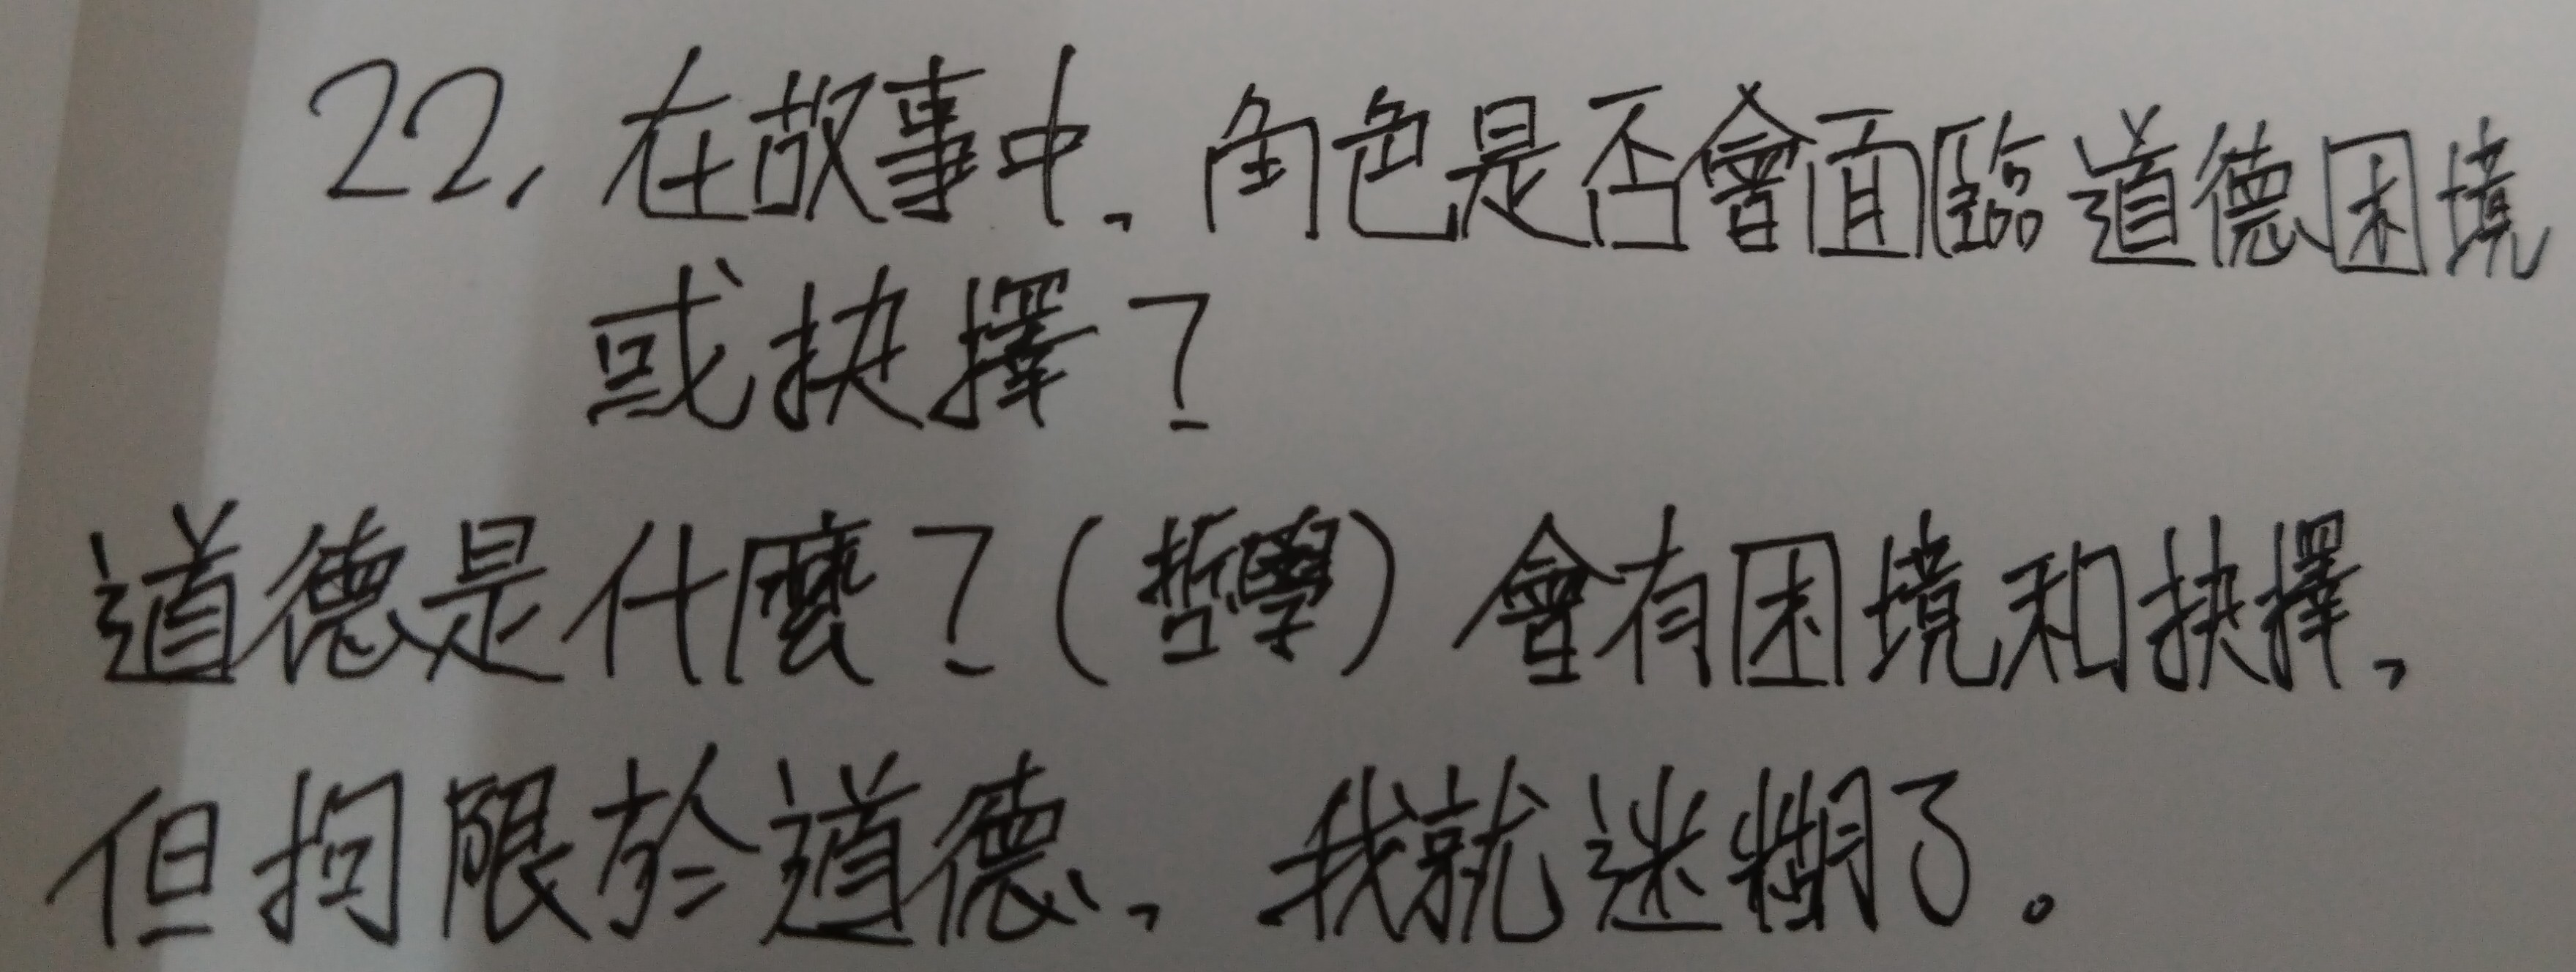 22, 在故事中,角色是否會面臨道德困境
或抉擇?
道德是什麼?(哲學)會有困境和抉擇,
但拘限於道德,我就迷糊了。